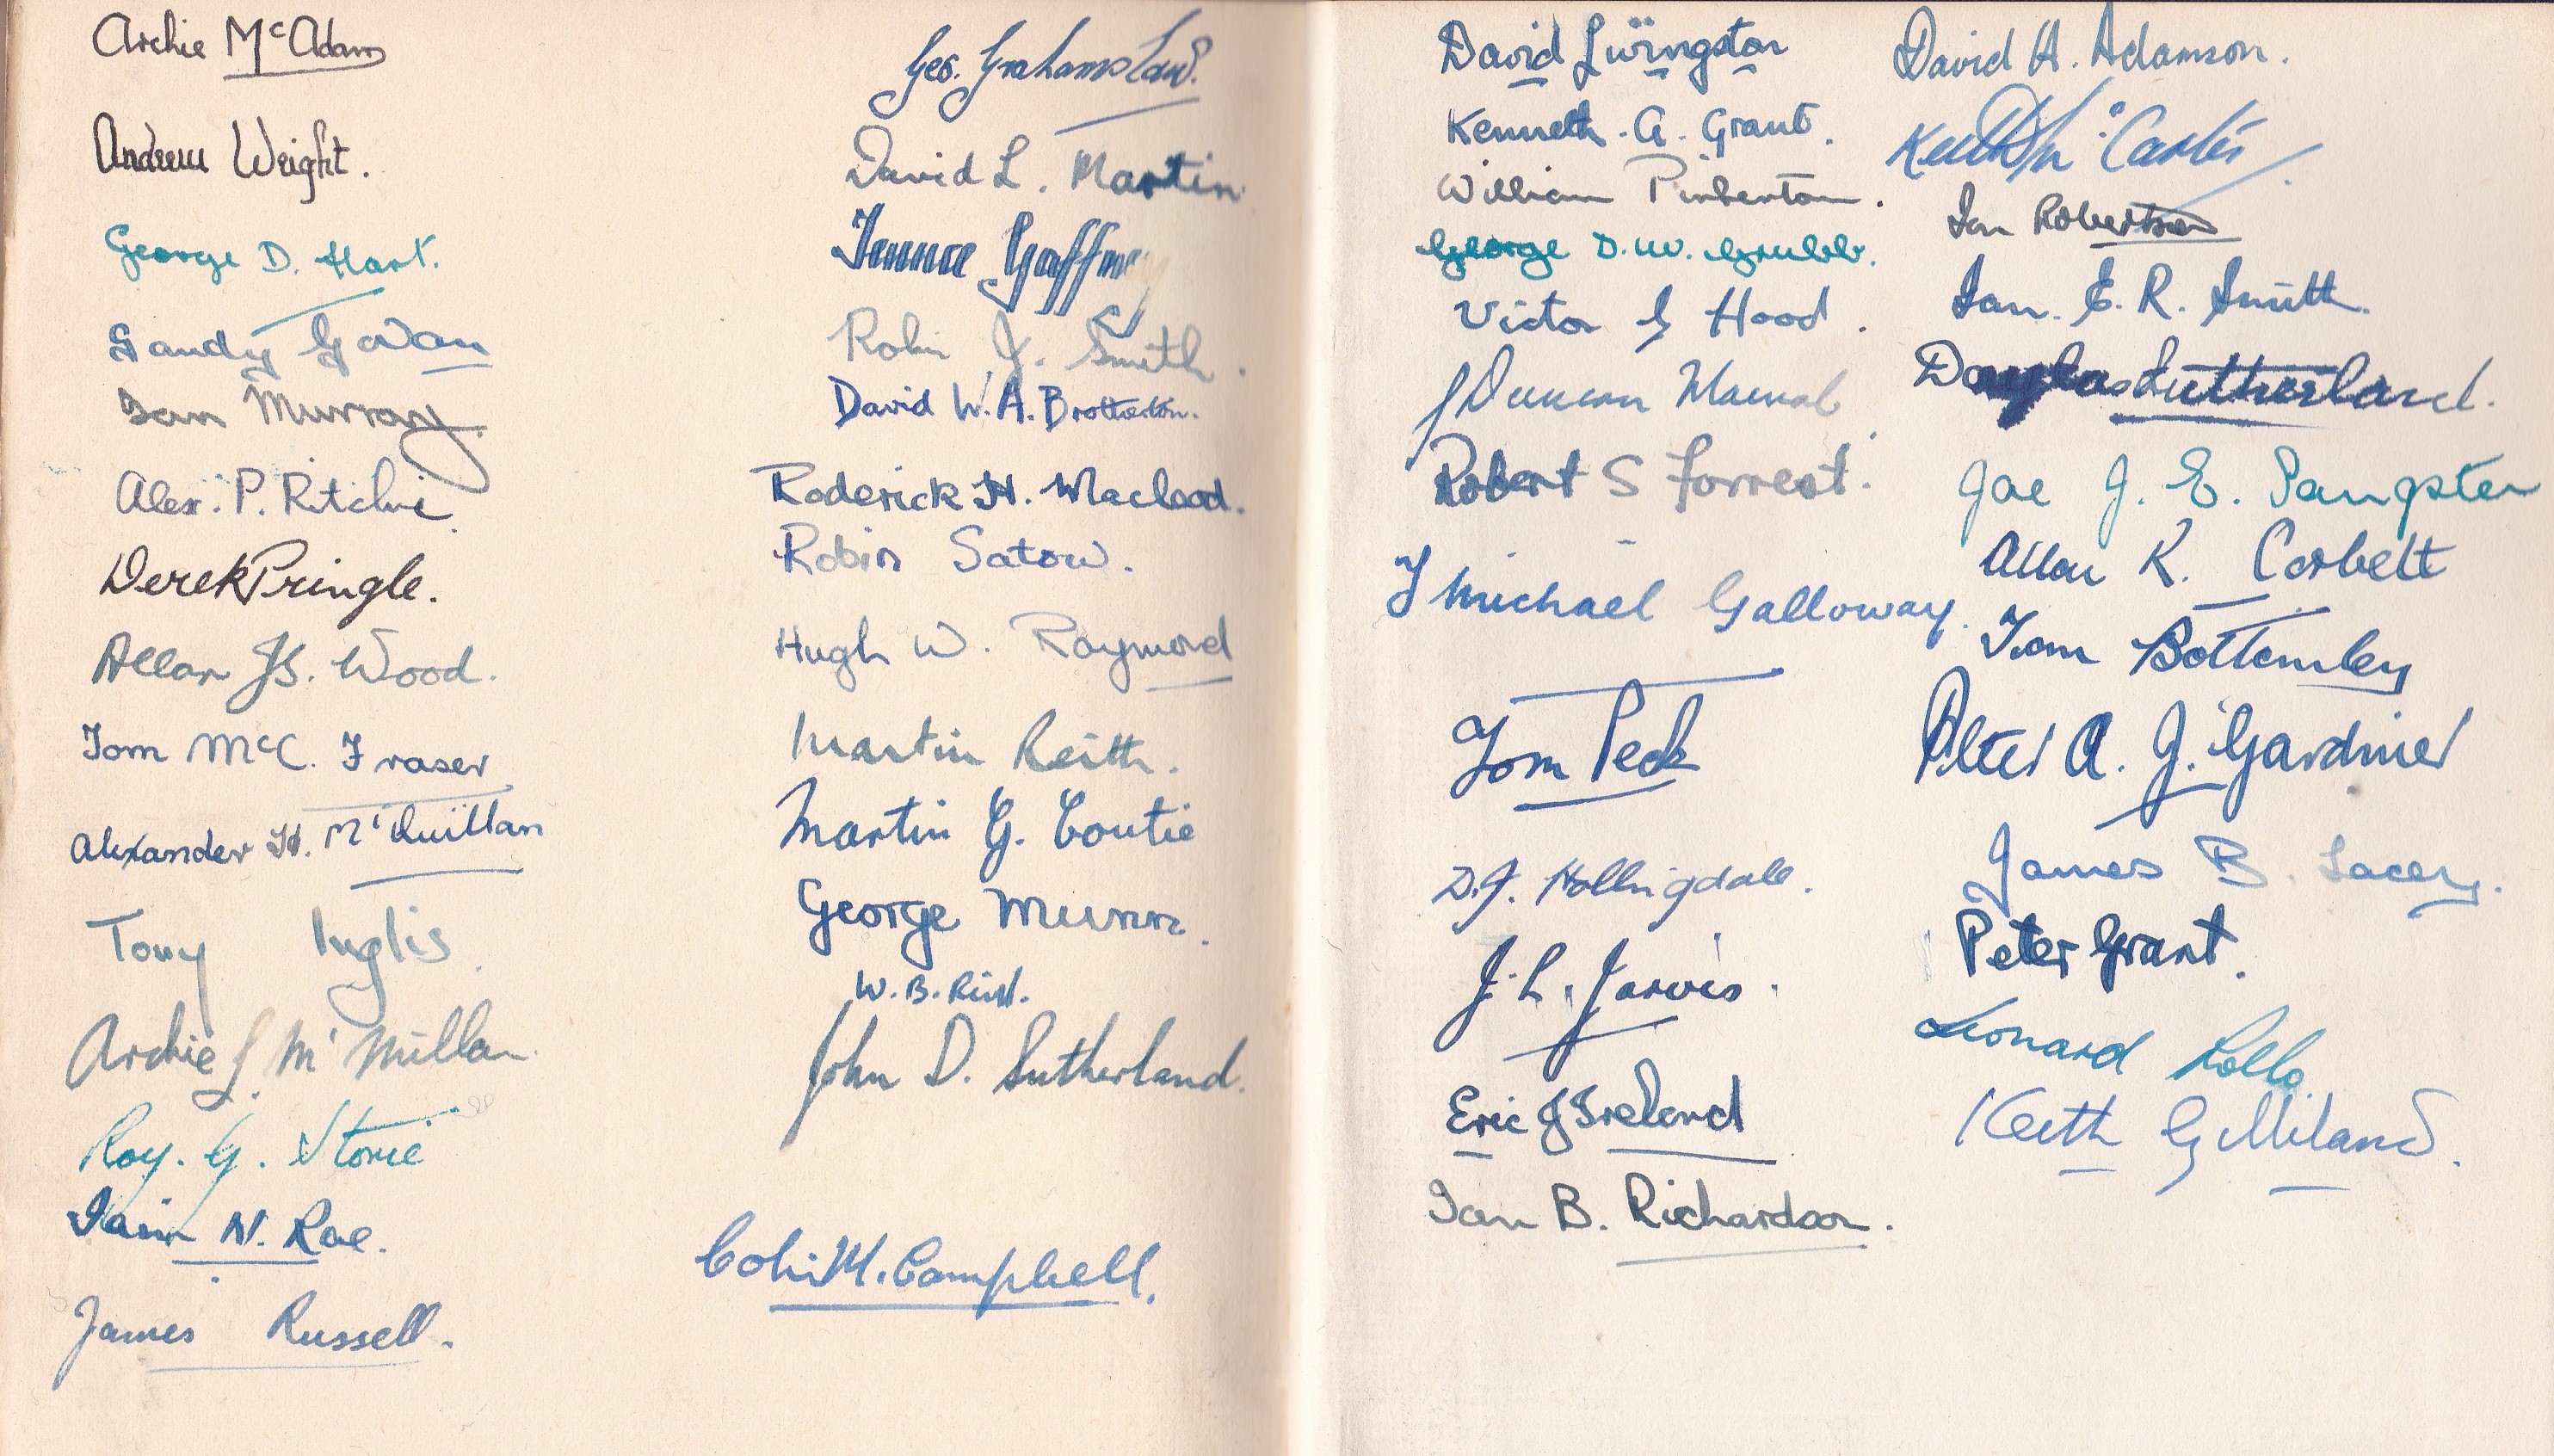 Archie McAdam
Andrew Wright.
George D. Hart.
Sandy Govan
Ian Murray.
Alex. P. Ritchie.
Derek Pringle.
Allan JS. Wood.
Tom McC. Fraser
Alexander H. M'Quillan
Tony Inglis.
Archie J. M'Millan.
Roy. G. Storie
Iain N. Rae.
James Russell.
Geo. Graham
David L. Martin
Gaffney
Robin J. Smith.
David W. A. Brotherton.
Roderick H. Macleod.
Robin Satow.
Hugh W. Raymond
Martin Keith.
Martin G. Coutie
George Munn.
W. B. Reid.
John D. Sutherland.
Colin M. Campbell.
David Livingston
Kenneth. A. Grant.
William Pinberton.
George D. W. Grubb.
Victor G Hood.
J Duncan Macnab
Robert S Forrest.
J Michael Galloway.
Tom Peck
D.J. Hollingdale.
J. L. Jarvis.
Eric J Ireland
Ian B. Richardson.
David H. Adamson.
Keith
Ian Robertson
Ian. E. R. Smith.
Douglas Sutherland.
J. E. Sangster
Allan K. Corbett
Tom Bottomley
Peter A. J. Gardiner
James B. Lacey.
Peter Grant.
Leonard Rollo
Keith Gilliland.